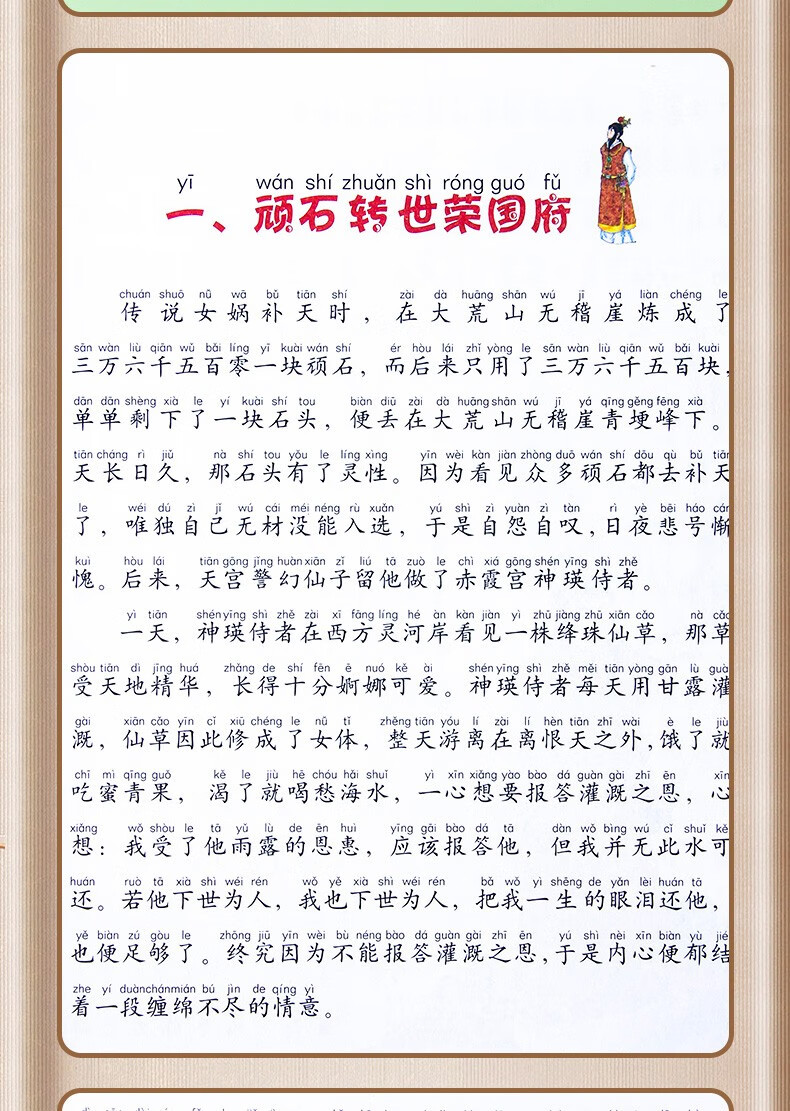 yī wán shí zhuǎn shì róng guó fǔ
一、顽石转世荣国府
chuán shuō nǚ wā bǔ tiān shí zài dà huāng shān wú jī yá liàn chéng le
传说女娲补天时，在大荒山无稽崖炼成了
sān wàn liù qiān wǔ bǎi líng yī kuài wán shí ér hòu lái zhǐ yòng le sān wàn liù qiān wǔ bǎi kuài
三万六千五百零一块顽石，而后来只用了三万六千五百块，
dān dān shèng xià le yí kuài shí tou biàn diū zài dà huāng shān wú jī yá qīng gěng fēng xià
单单剩下了一块石头，便丢在大荒山无稽崖青埂峰下。
tiān cháng rì jiǔ nà shí tou yǒu le líng xìng yīn wèi kàn jiàn zhòng duō wán shí dōu qù bǔ tiān
天长日久，那石头有了灵性。因为看见众多顽石都去补天
le wéi dú zì jǐ wú cái méi néng rù xuǎn yú shì zì yuàn zì tàn rì yè bēi háo cán
了，唯独自己无材没能入选，于是自怨自叹，日夜悲号惭
kuì hòu lái tiān gōng jǐng huàn xiān zǐ liú tā zuò le chì xiá gōng shén yīng shì zhě
愧。后来，天宫警幻仙子留他做了赤霞宫神瑛侍者。
yì tiān shén yīng shì zhě zài xī fāng líng hé àn kàn jiàn yì zhū jiàng zhū xiān cǎo nà cǎo
一天，神瑛侍者在西方灵河岸看见一株绛珠仙草，那草
shòu tiān dì jīng huá zhǎng de shí fēn ē nuó kě ài shén yīng shì zhě měi tiān yòng gān lù guàn
受天地精华，长得十分婀娜可爱。神瑛侍者每天用甘露灌
gài xiān cǎo yīn cǐ xiū chéng le nǚ tǐ zhěng tiān yóu lí zài lí hèn tiān zhī wài è le jiù
溉，仙草因此修成了女体，整天游离在离恨天之外，饿了就
chī mì qīng guǒ kě le jiù hē chóu hǎi shuǐ yì xīn xiǎng yào bào dá guàn gài zhī ēn xīn
吃蜜青果，渴了就喝愁海水，一心想要报答灌溉之恩，心
xiǎng wǒ shòu le tā yǔ lù de ēn huì yīng gāi bào dá tā dàn wǒ bìng wú cǐ shuǐ kě
想：我受了他雨露的恩惠，应该报答他，但我并无此水可
huán ruò tā xià shì wéi rén wǒ yě xià shì wéi rén bǎ wǒ yì shēng de yǎn lèi huán tā
还。若他下世为人，我也下世为人，把我一生的眼泪还他，
yě biàn zú gòu le zhōng jiū yīn wèi bù néng bào dá guàn gài zhī ēn yú shì nèi xīn biàn yù jié
也便足够了。终究因为不能报答灌溉之恩，于是内心便郁结
zhe yí duàn chán mián bú jìn de qíng yì
着一段缠绵不尽的情意。